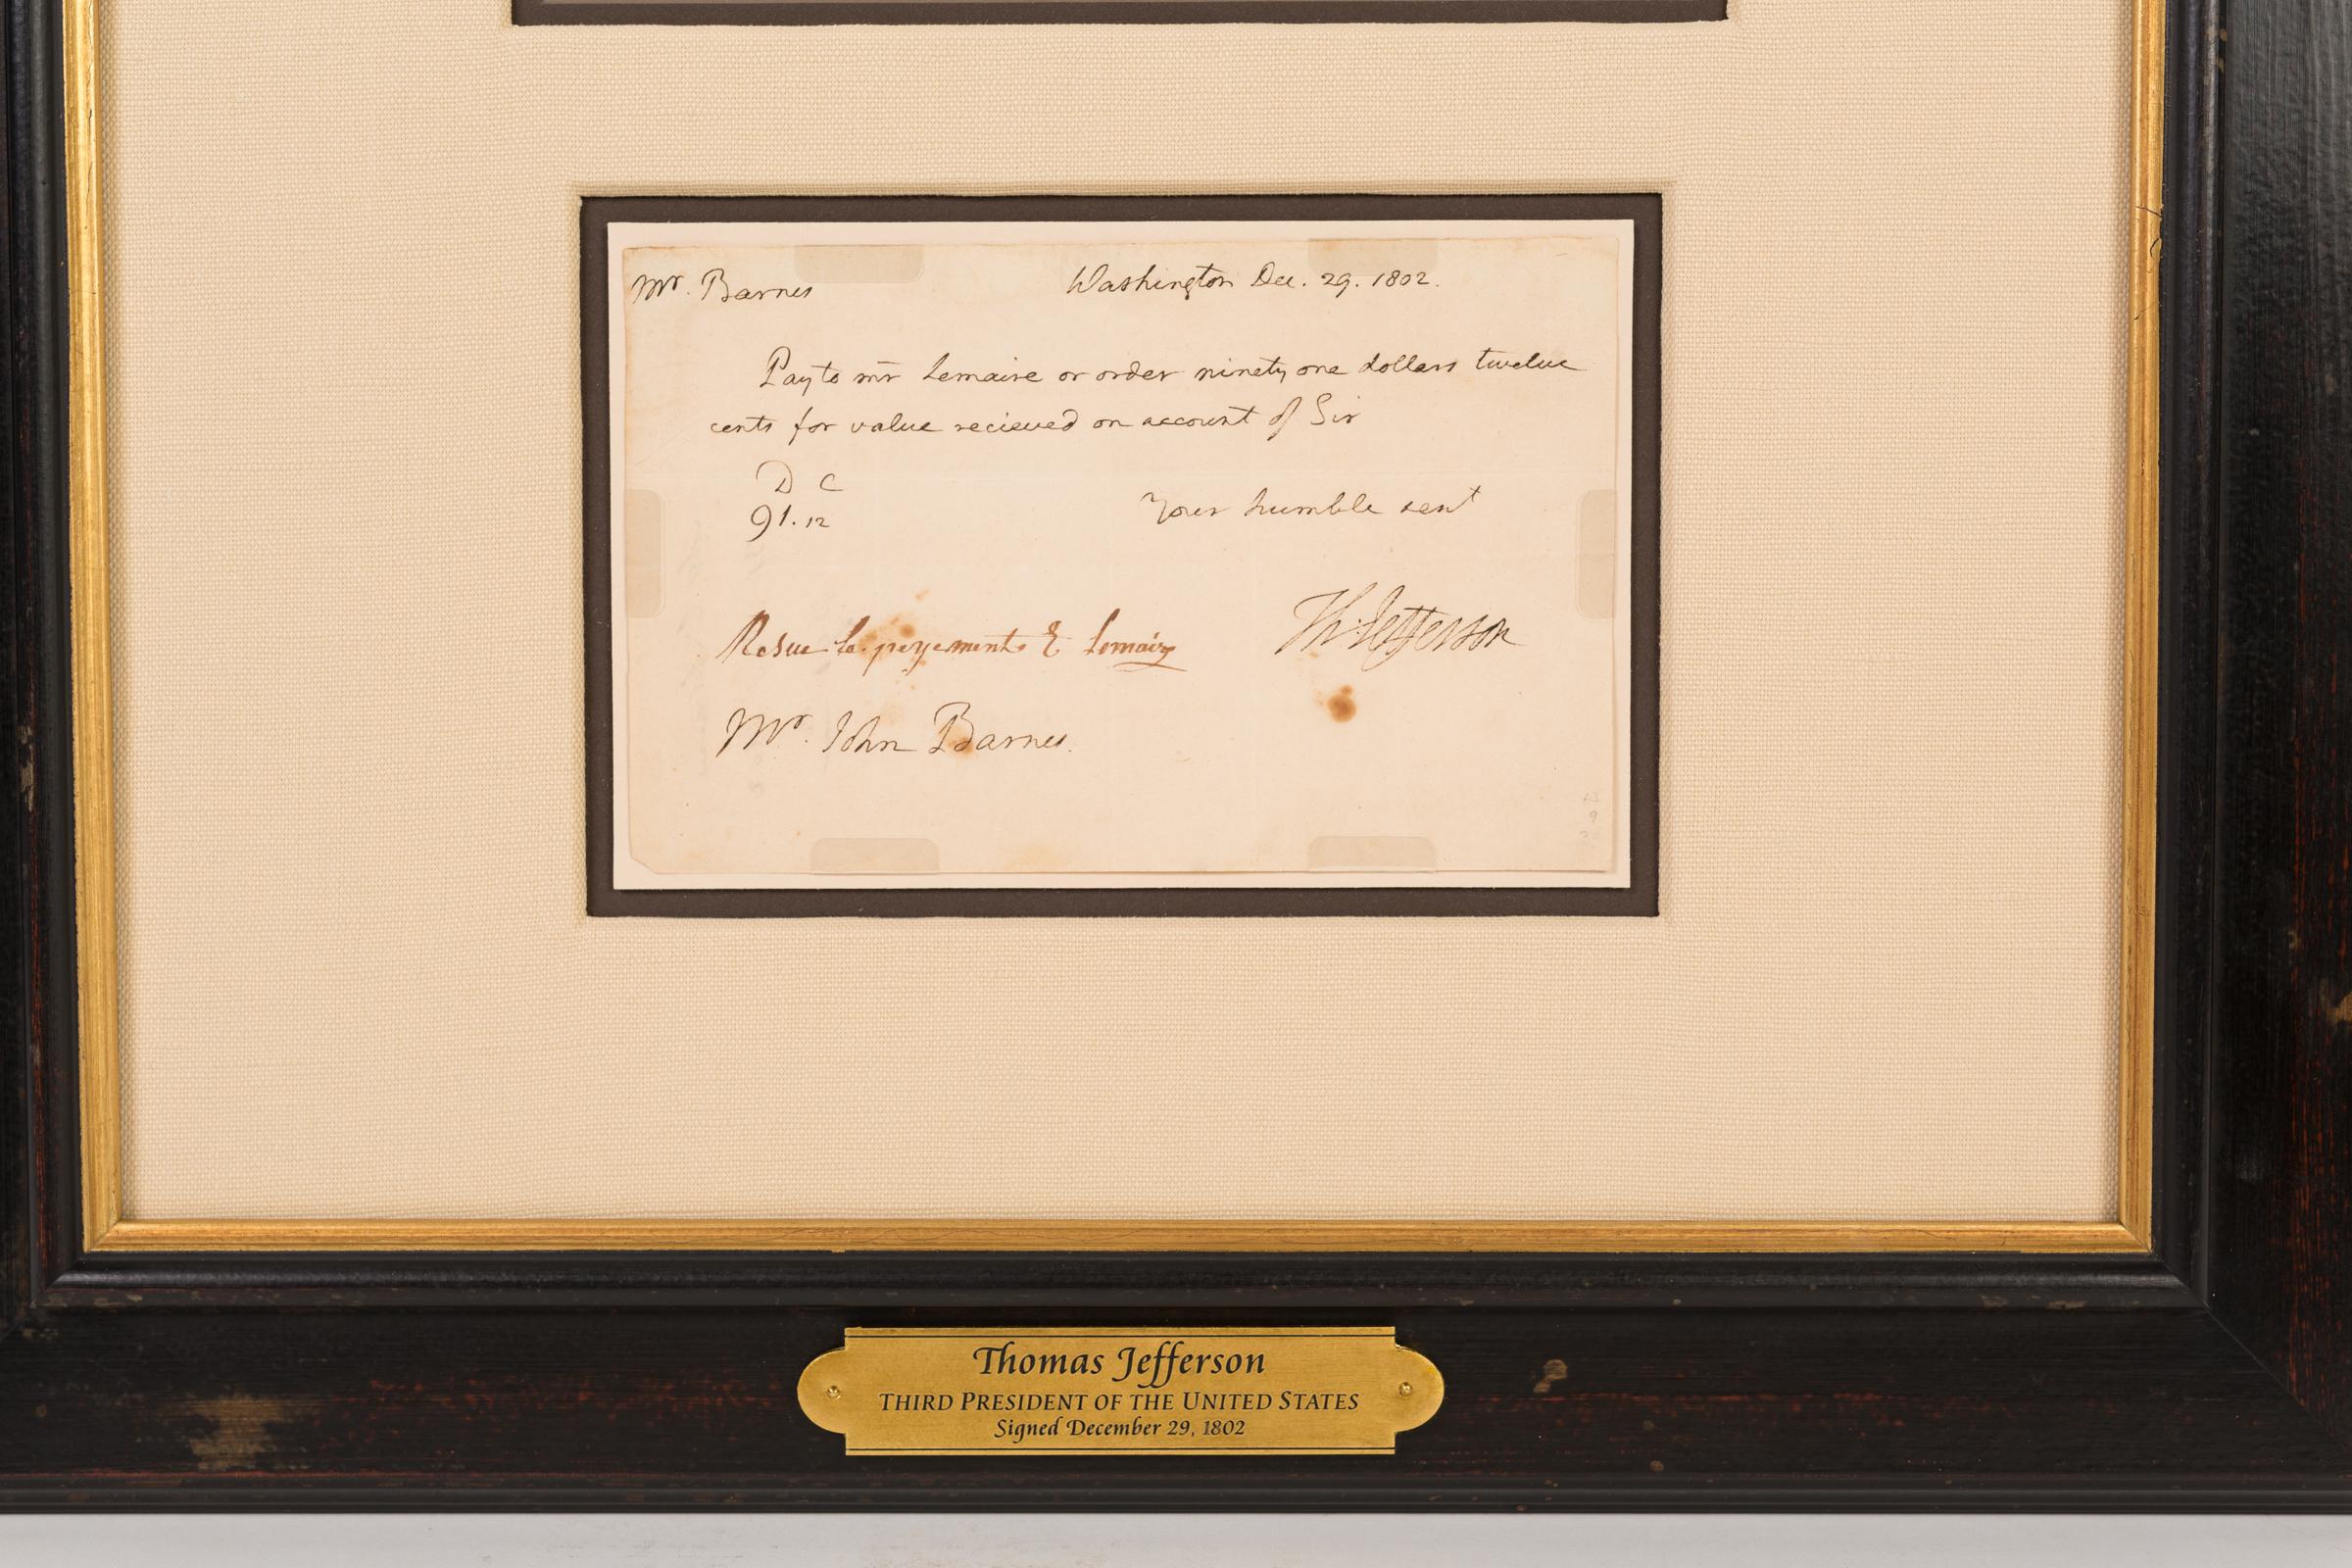 Mr. Barnes Washington Dec. 29. 1802.
Pay to mr Lemaire or order ninety one dollars twelve
cents for value recieved on account of Sir
D C
91.12
Your humble servt
Th: Jefferson
Resue le payement E Lemaire
Mr. John Barnes.
Thomas Jefferson
THIRD PRESIDENT OF THE UNITED STATES
Signed December 29, 1802